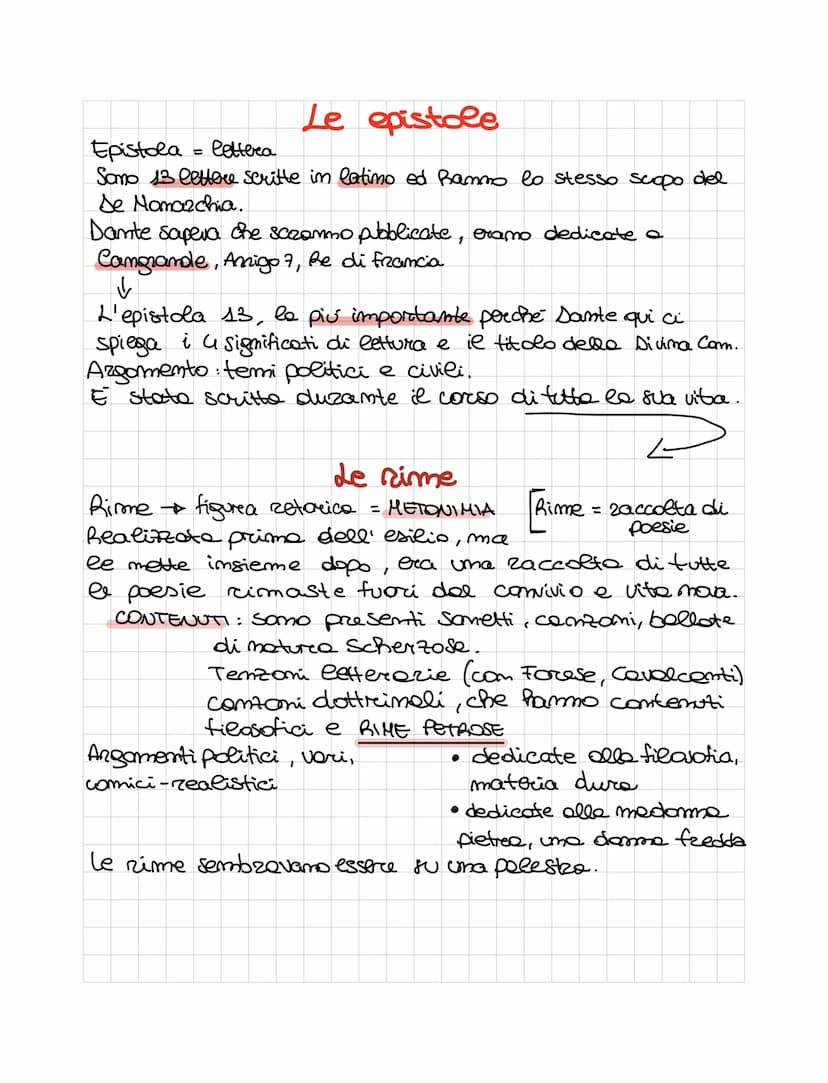 Le epistole
Epistola = lettera
Sono 13 lettere scritte in latino ed hanno lo stesso scopo del
De Monarchia.
Dante sapeva che saranno pubblicate, erano dedicate a
Cangrande, Arrigo 7, Re di Francia
↓
L'epistola 13, la più importante perché Dante qui ci
spiega i 4 significati di lettura e il titolo della Divina Com.
Argomento: temi politici e civili.
È stata scritta durante il corso di tutta la sua vita.
Le rime
Rime → figura retorica = METONIMIA [Rime = raccolta di
poesie
Realizzata prima dell'esilio, ma
le mette insieme dopo, era una raccolta di tutte
le poesie rimaste fuori dal convivio e vita nova.
CONTENUTI: sono presenti sonetti, canzoni, ballate
di natura scherzose.
Tenzoni letterarie (con Forese, Cavalcanti)
canzoni dottrinali, che hanno contenuti
filosofici e RIME PETROSE
Argomenti politici, vari,
comici-realistici
• dedicate alla filosofia,
materia dura
• dedicate alla madonna
pietra, una donna fredda
Le rime sembravano essere su una palestra.